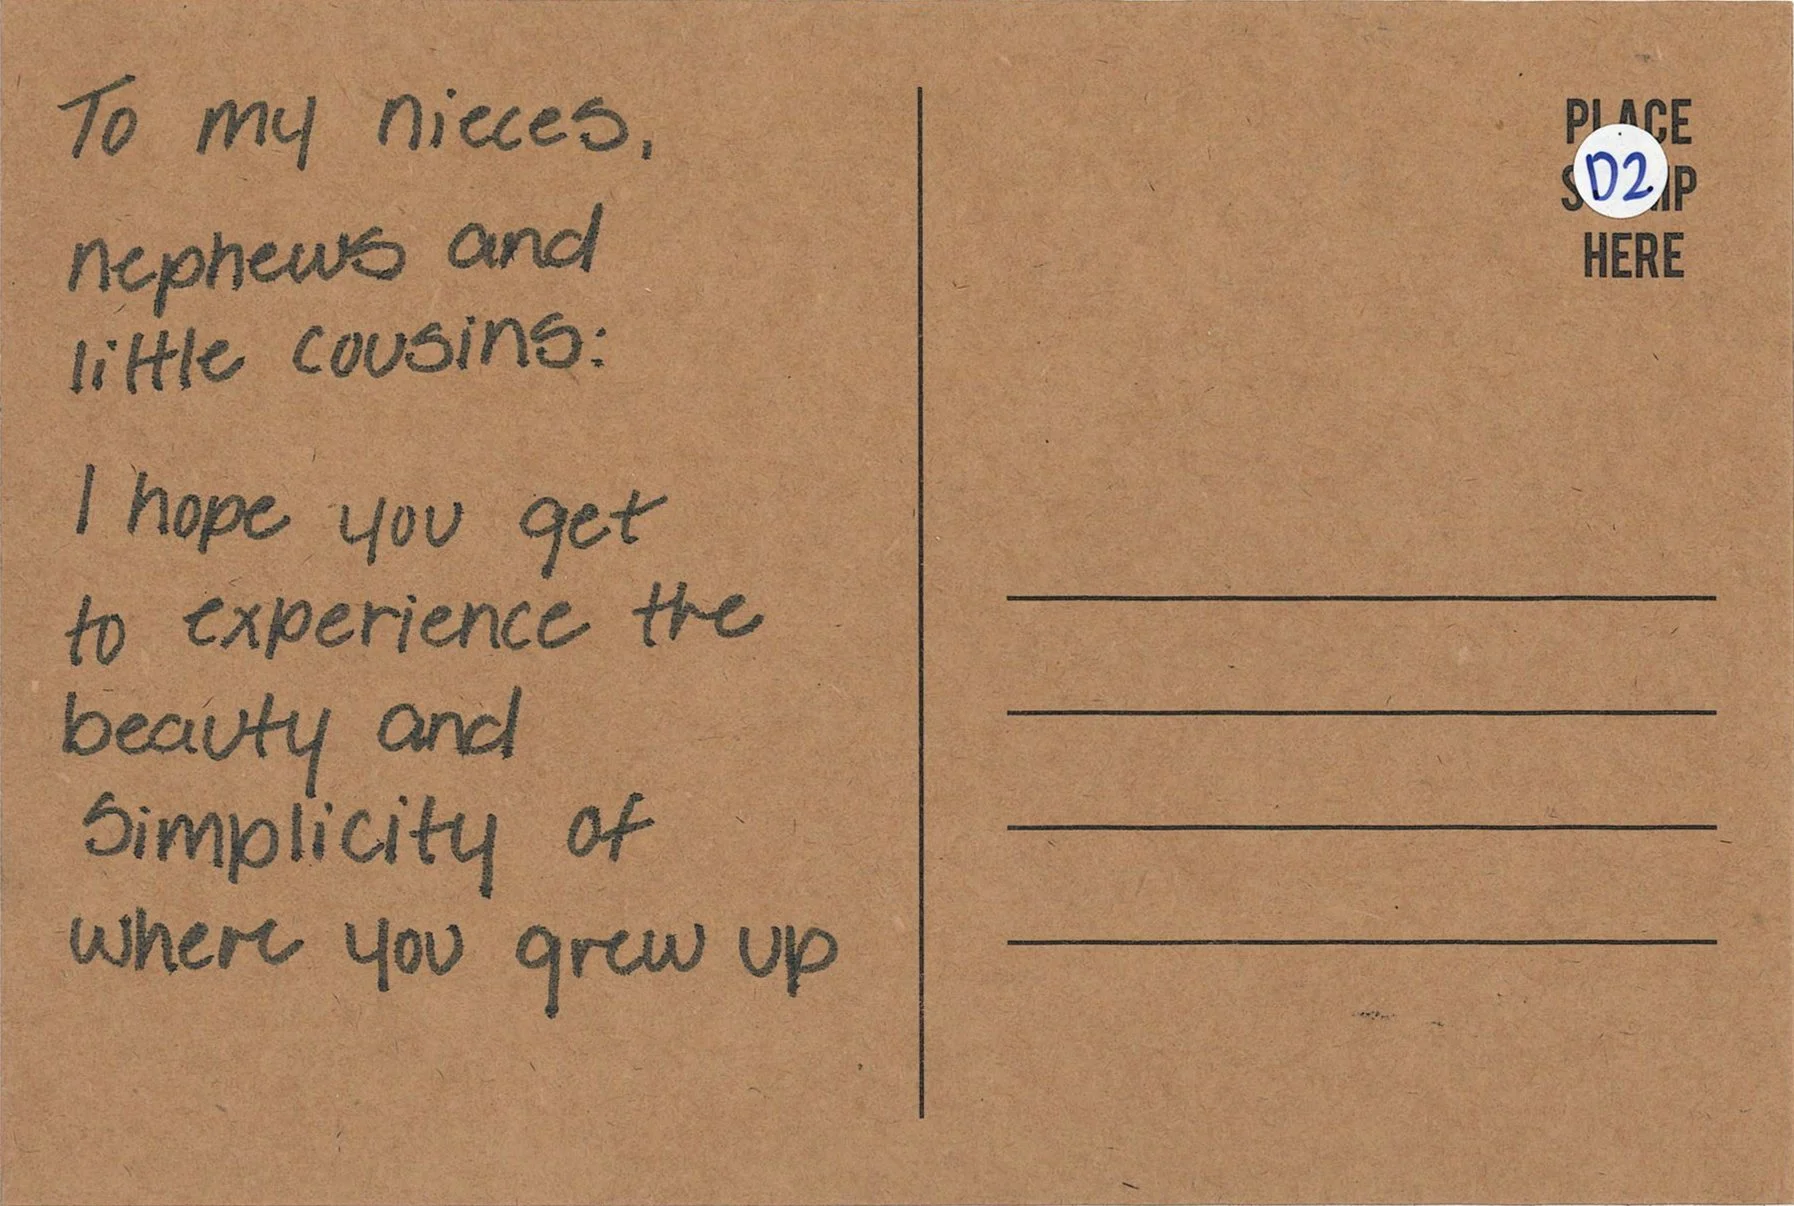 To my nieces,
nephews and
little cousins:
I hope you get
to experience the
beauty and
simplicity of
where you grew up
PLACE
D2
HERE